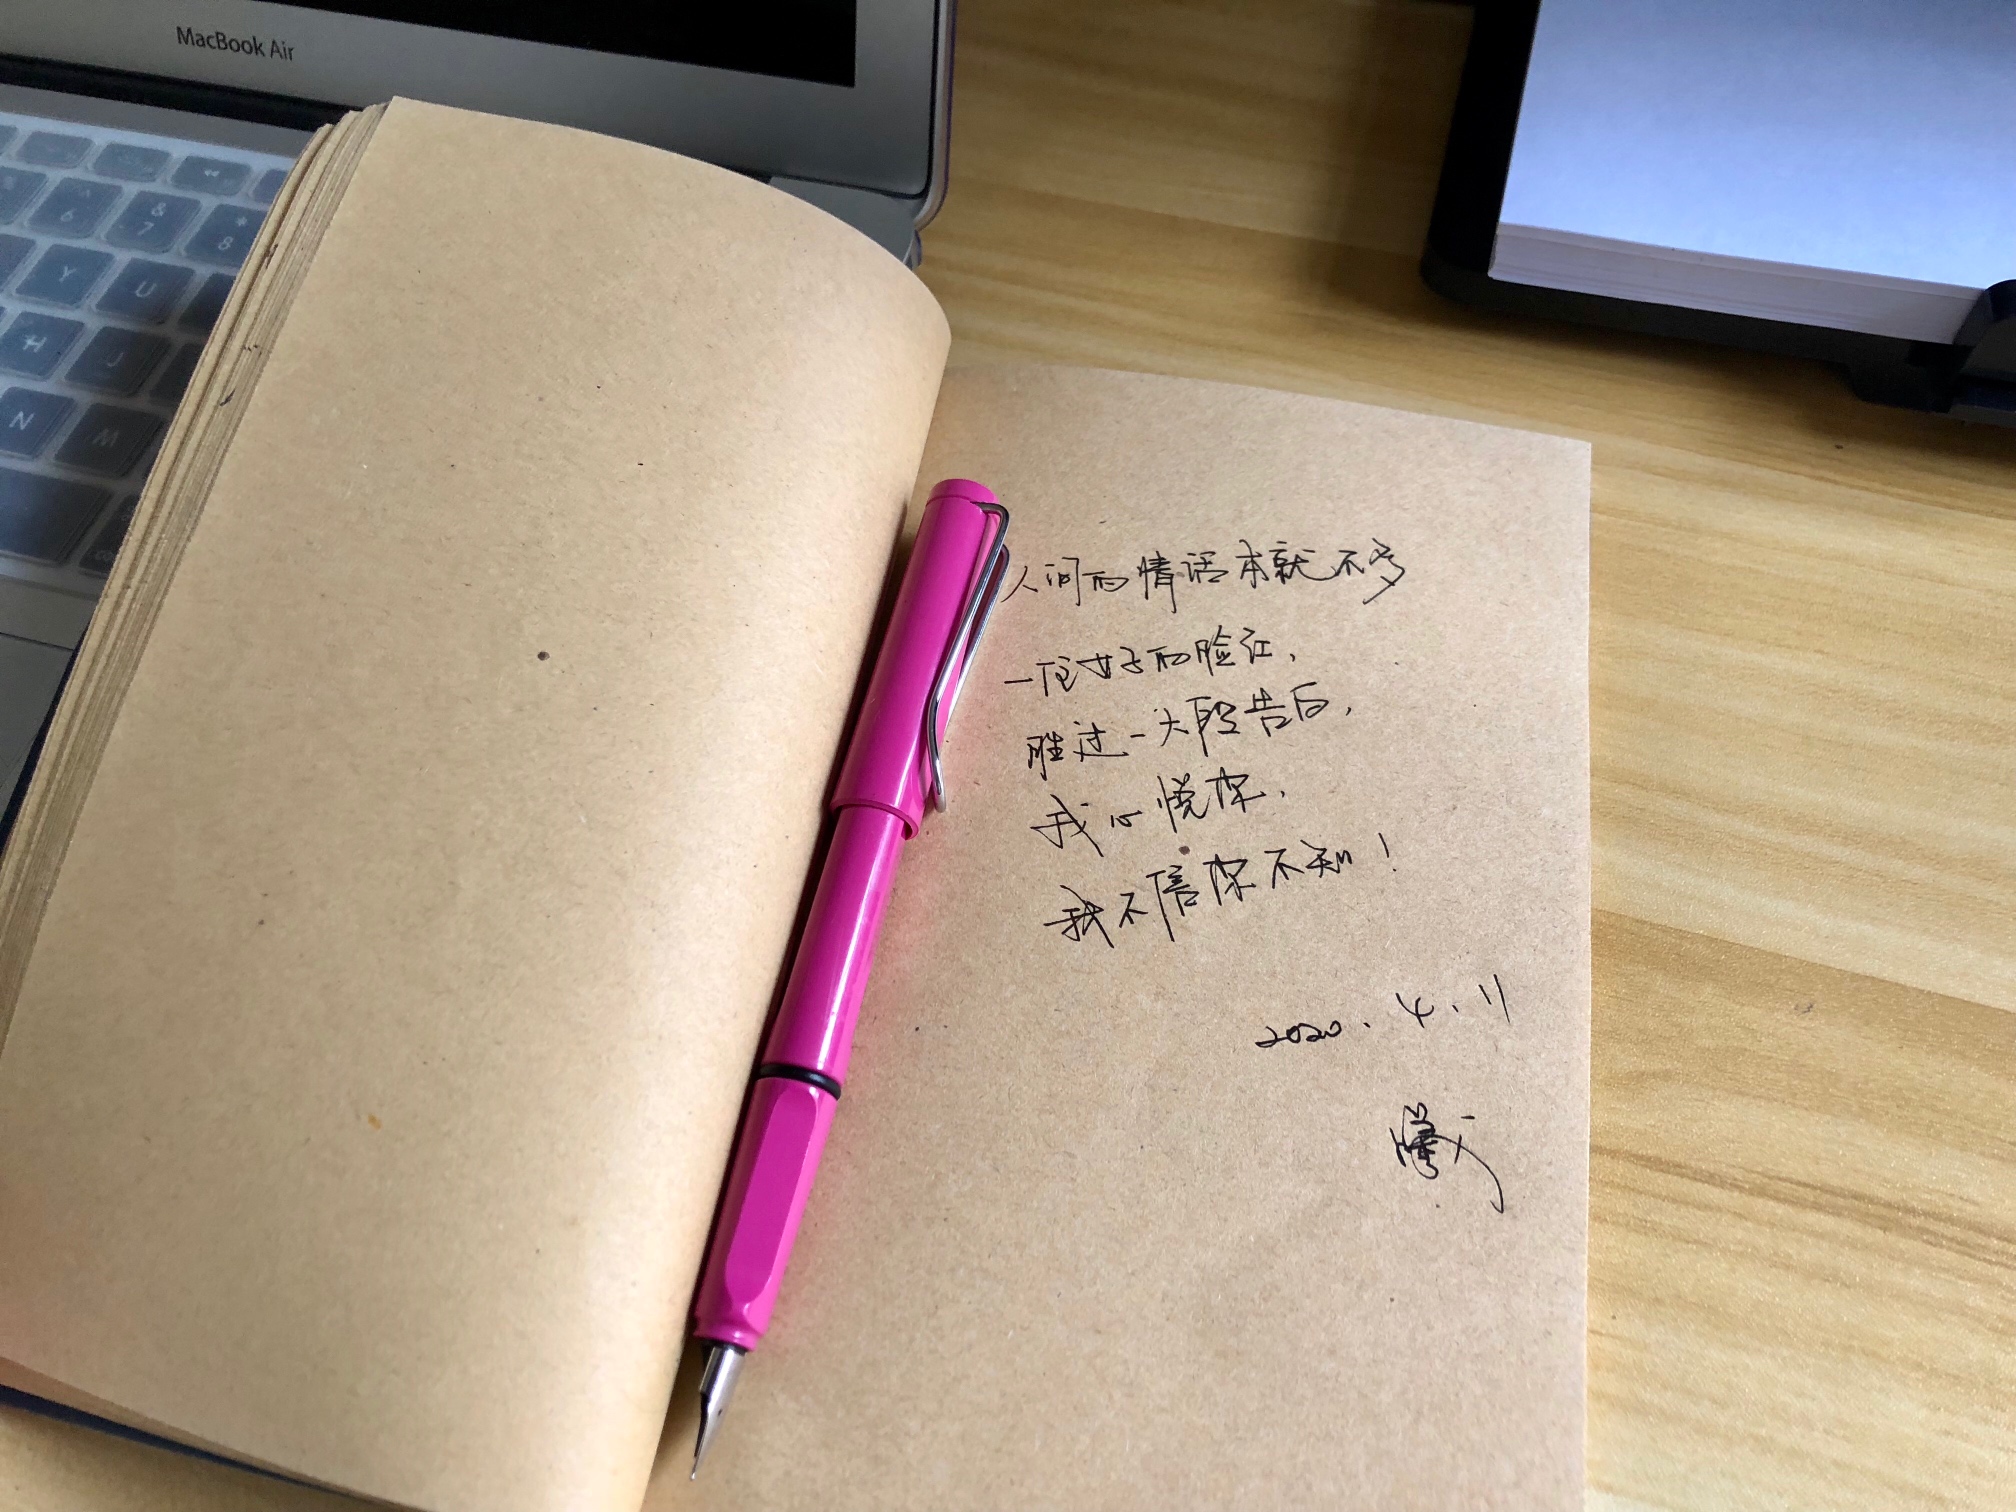 MacBook Air
^
6
&
7
*
8
Y
U
H
J
N
M
人间的情话本就不多
一位女子的脸红,
胜过一大段告白,
我心悦你,
我不信你不知!
2020.4.11